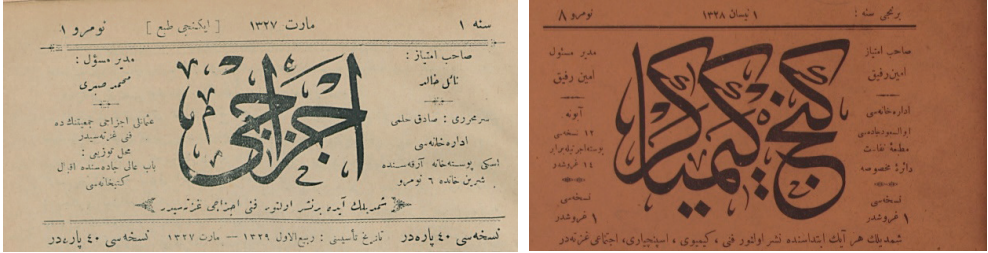 سنه ١
مارت ١٣٢٧
[ ایكنجی طبع ]
نومرو ١
صاحب امتیاز :
نائل خالد
سرمحرری : صادق حلمی
اداره‌خانه‌سی
اسكی پوسته‌خانه آرقه‌سنده
شرین خانده ٦ نومرو
اجزاجی
مدیر مسؤل :
محمد صبری
عثمانلی اجزاجی جمعیتنك ده
فنی غزته‌سیدر
محل توزیعی :
باب عالی جاده‌سنده اقبال
كتبخانه‌سی
شمدیلك آیده برنشر اولنور فنی اجزاجی غزته‌سیدر
نسخه‌سی ٤٠ پاره‌در
تاریخ تأسیسی : ربیع الاول ١٣٢٩ — مارت ١٣٢٧
نسخه‌سی ٤٠ پاره‌در
برنجی سنه :
١ نیسان ١٣٢٨
نومرو ٨
صاحب امتیاز
امین رفیق
اداره‌خانه‌سی
ابوالسعود جاده‌سی
مطبعهٔ نفاست
دائرهٔ مخصوصه
نسخه‌سی
١ غروشدر
كنج كیمیاكر
مدیر مسئول
امین رفیق
آبونه
١٢ نسخه‌سی
پوسته اجرتیله برابر
١٤ غروشدر
نسخه‌سی
١ غروشدر
شمدیلك هر آیك ابتداسنده نشر اولنور فنی ، كیمیوی ، اسپنچیاری، اجتماعی غزته‌در